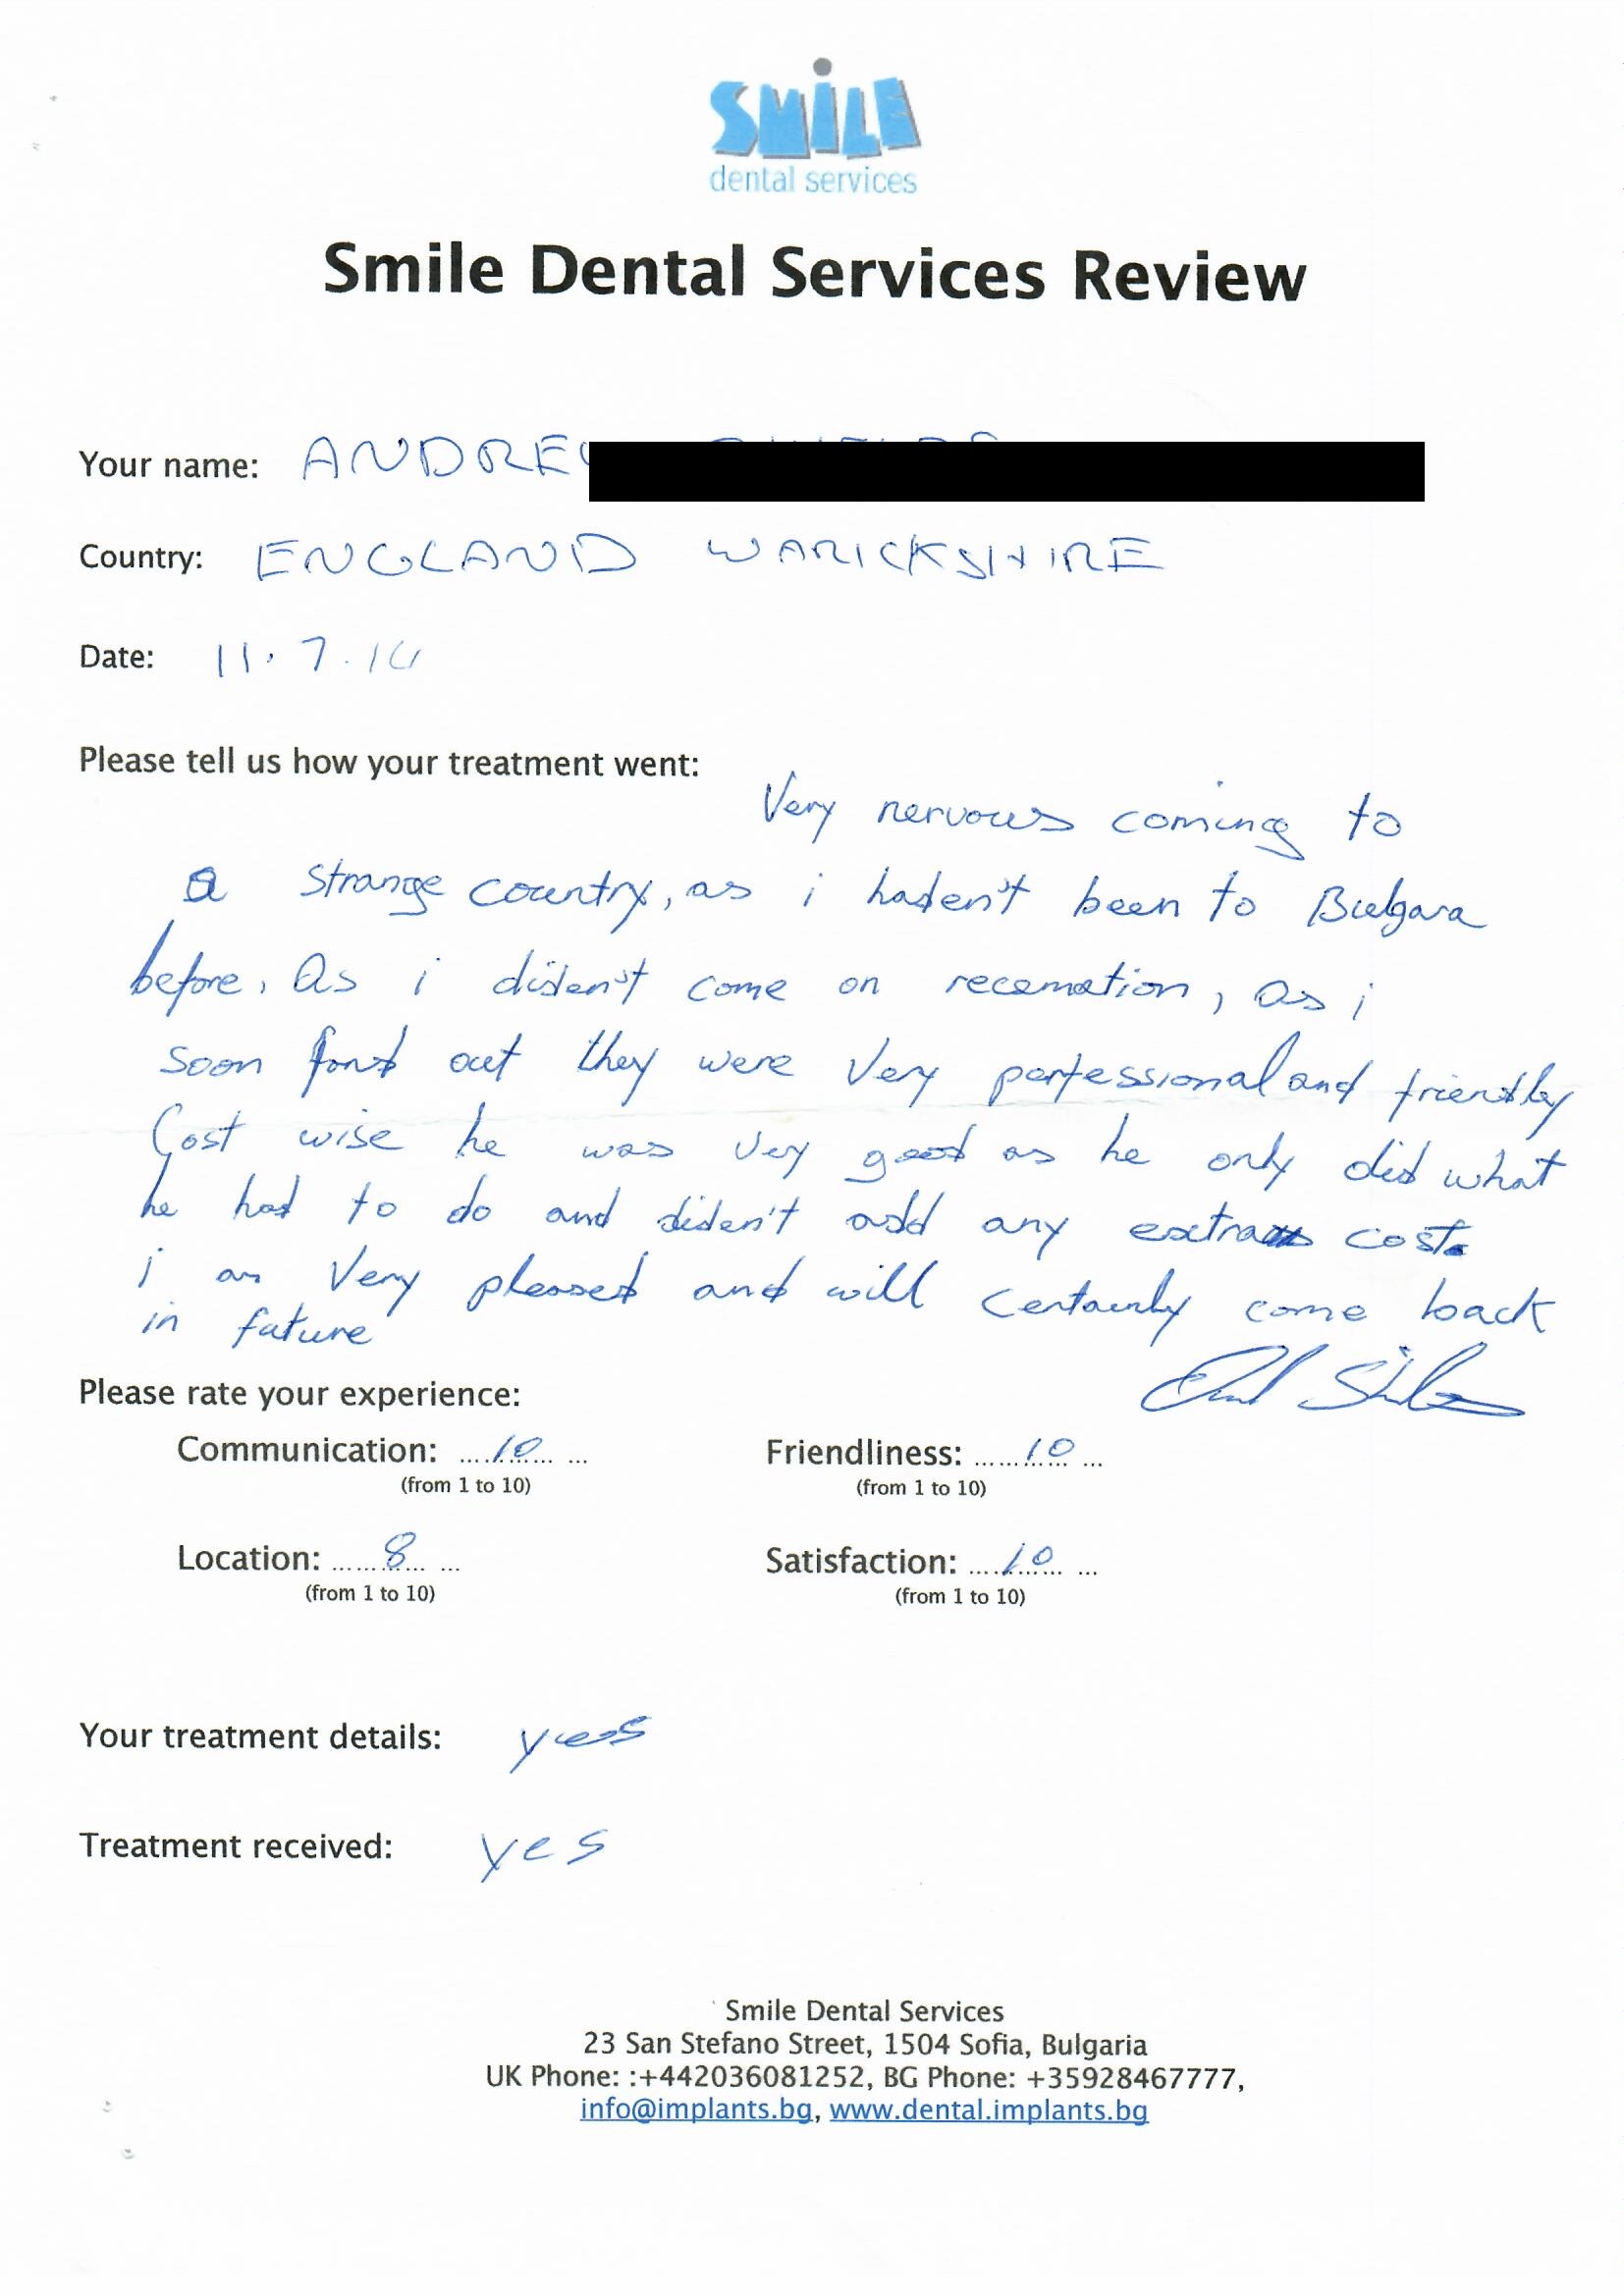 SMiLE
dental services
Smile Dental Services Review
Your name: ANDREW
Country: ENGLAND WARICKSHIRE
Date: 11.7.14
Please tell us how your treatment went:
Very nervous coming to
a strange country, as i haden't been to Bulgara
before. As i diden't come on recemation, as i
soon fond out they were very perfessional and friendly
Cost wise he was very good as he only did what
he had to do and diden't add any extra cost.
i am very pleased and will certainly come back
in future
Please rate your experience:
Communication: 10 Friendliness: 10
(from 1 to 10) (from 1 to 10)
Location: 8 Satisfaction: 10
(from 1 to 10) (from 1 to 10)
Your treatment details: yes
Treatment received: yes
Smile Dental Services
23 San Stefano Street, 1504 Sofia, Bulgaria
UK Phone: :+442036081252, BG Phone: +35928467777,
info@implants.bg, www.dental.implants.bg